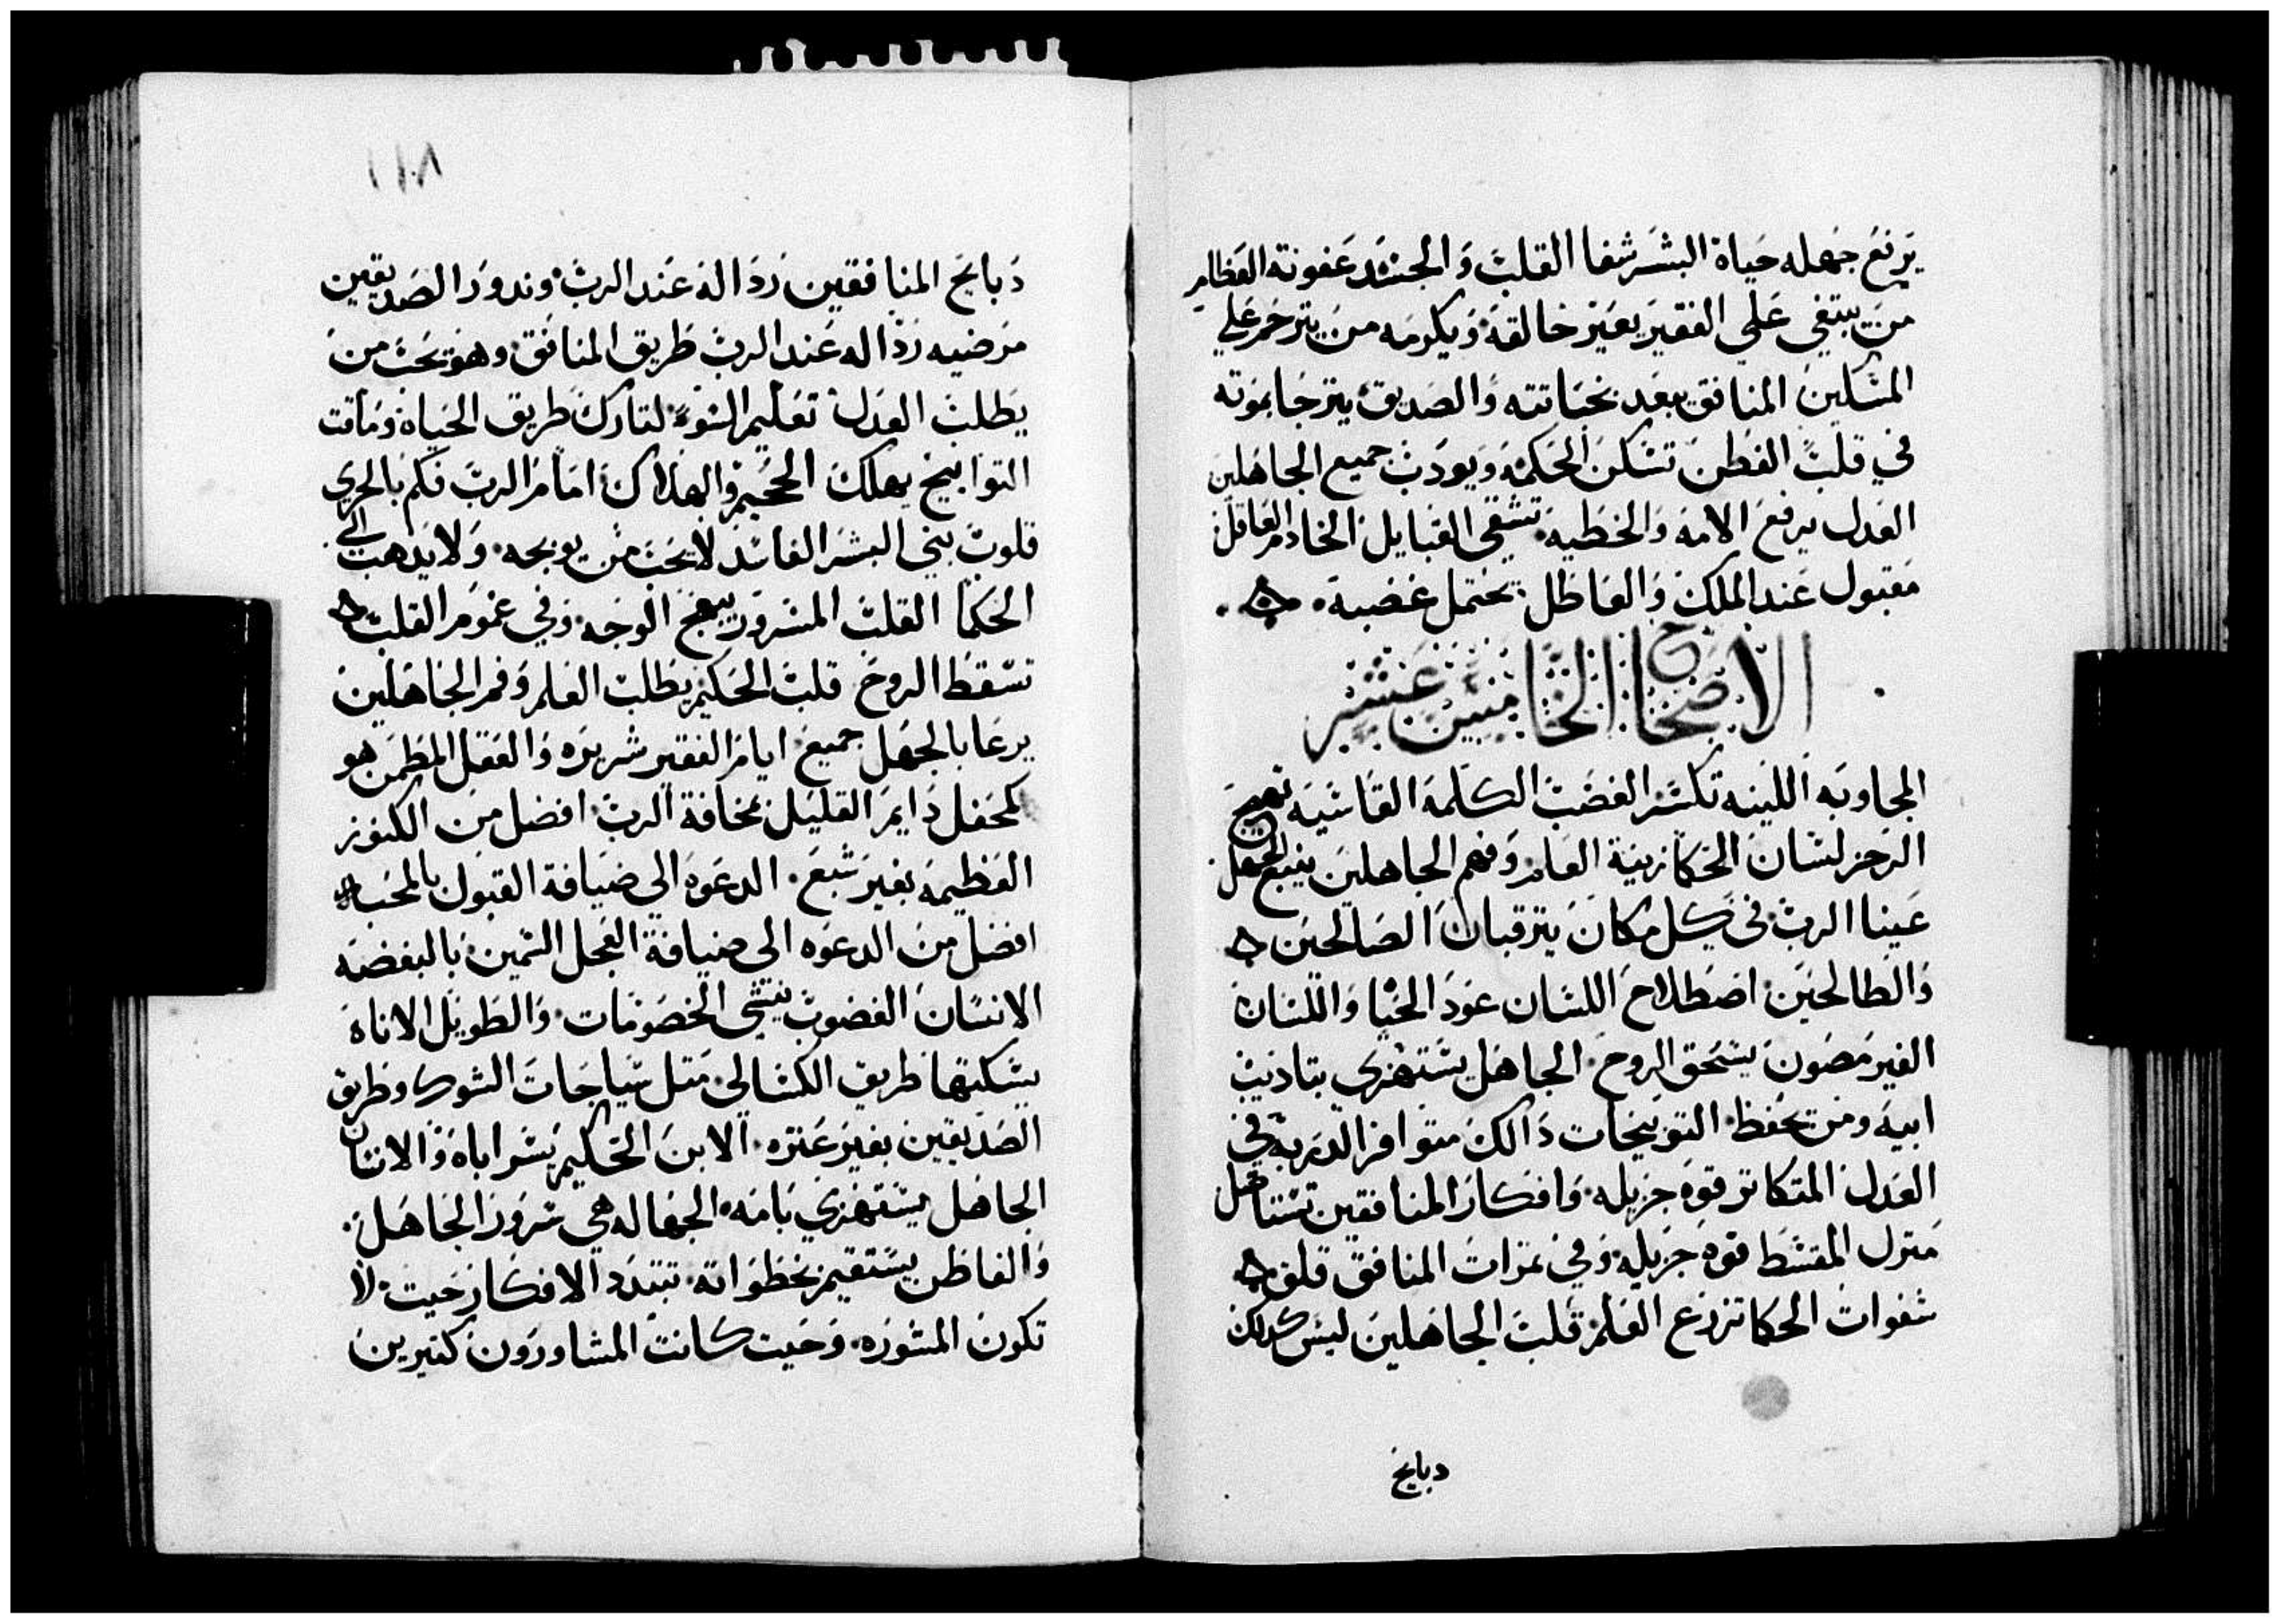 يرفع جهله حياة البشر شفا القلب والجسد عفونة العظام
من يبتغي على الفقير يعير خالقه ويكرمه من يترحم علي
المسكين المنافق يبعد بخباتته والصديق يترجا بموته
في قلب الفطن تسكن الحكمه ويودب جميع الجاهلين
العدل يرفع الامه والخطيه تشقى القبايل الخادم العاقل
مقبول عند الملك والعاطل يحتمل غضبه
الاصحاح الخامس عشر
المجاوبه اللينه تكسر الغضب الكلمة القاسيه تهيج
الرجز لسان الحكما زينة العلم وفهم الجاهلين ينبع الجهل
عينا الرب في كل مكان يترقبان الصالحين
والطالحين اصطلاح اللسان عود الحيا واللسان
الغير مصون يسحق الروح الجاهل يستهزي بتاديب
ابيه ومن تحفظ التوبيخات دالك متوافر الدربه في
العدل المتكاتر قوه جزيله وافكار المنافقين تستاهل
منزل المقسط قوه جزيله وفي تمرات المنافق قلق
شفوات الحكما تزرع العلم قلب الجاهلين ليس كدلك
دبايح
١١٨
دبايح المنافقين رداله عند الرب وندور الصديقين
مرضيه رداله عند الرب طريق المنافق وهو يحب من
يطلب العدل تعليم السوء لتارك طريق الحياة وماقت
التوابيخ يهلك الجحيم والهلاك امام الرب فكم بالحري
قلوب بني البشر الفاسد لا يحب من يوبخه ولا يدهب الى
الحكما القلب المسرور يبهج الوجه وفي غموم القلب
تسقط الروح قلب الحكيم يطلب العلم وفم الجاهلين
يرعا بالجهل جميع ايام الفقير شريره والعقل المطمن هو
كمحفل دايم القليل بمخافة الرب افضل من الكنوز
العظيمه بغير شبع الدعوه الى ضيافة القبول بالمحبه
افضل من الدعوه الى ضيافة العجل السمين بالبغضه
الانسان الغضوب ينشي الخصومات والطويل الاناه
يسكنها طريق الكسالى متل سياجات الشوك وطريق
الصديقين بغير عتره الابن الحكيم يسر اباه والانسان
الجاهل يستهزي بامه الجهاله هي سرور الجاهل
والفاطن يستقيم بخطواته تتبدد الافكار حيت لا
تكون المشوره وحيت كانت المشاورون كتيرين